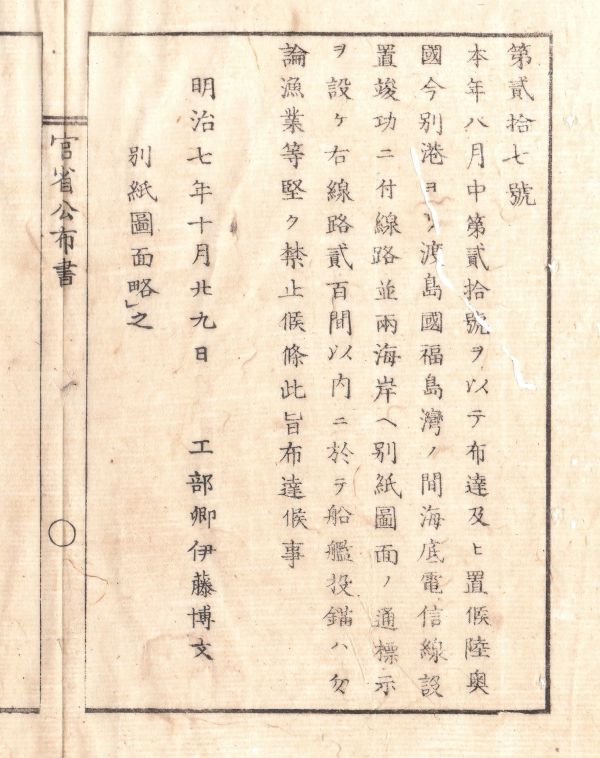 第貳拾七號
本年八月中第貳拾號ヲ以テ布達及ヒ置候陸奥
國今別港ヨリ渡島國福島灣ノ間海底電信線設
置竣功ニ付線路並兩海岸ヘ別紙圖面ノ通標示
ヲ設ケ右線路貳百間以内ニ於テ船艦投錨ハ勿
論漁業等堅ク禁止候條此旨布達候事
明治七年十月廿九日 工部卿伊藤博文
別紙圖面略之
官省公布書